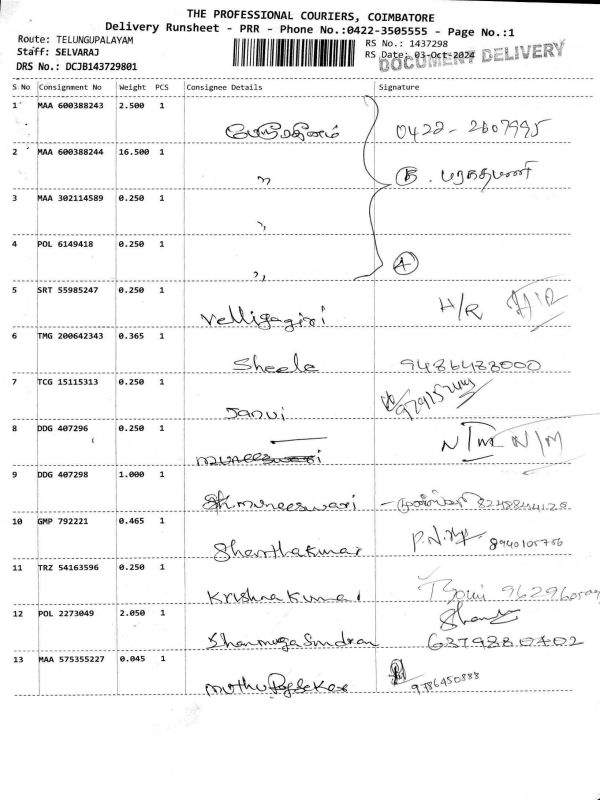 THE PROFESSIONAL COURIERS, COIMBATORE
Delivery Runsheet - PRR - Phone No.:0422-3505555 - Page No.:1
Route: TELUNGUPALAYAM
RS No.: 1437298
Staff: SELVARAJ
RS Date: 03-Oct-2024
DOCUMENT DELIVERY
DRS No.: DCJB143729801
S No Consignment No Weight PCS Consignee Details Signature
1 MAA 600388243 2.500 1
0422-2607995
2 MAA 600388244 16.500 1 "
3 MAA 302114589 0.250 1 "
4 POL 6149418 0.250 1 " 4
5 SRT 55985247 0.250 1 H/R H/R
Velligagiri
6 TMG 200642343 0.365 1
Sheela 9486483000
7 TCG 15115313 0.250 1
Janvi
8 DDG 407296 0.250 1 N/M N/M
muneeswari
9 DDG 407298 1.000 1
muneeswari
10 GMP 792221 0.465 1 8940105756
Shanthakumar
11 TRZ 54163596 0.250 1
Krishna Kumar
12 POL 2273049 2.050 1
Shanmuga Sundran 6379880402
13 MAA 575355227 0.045 1
9786450888